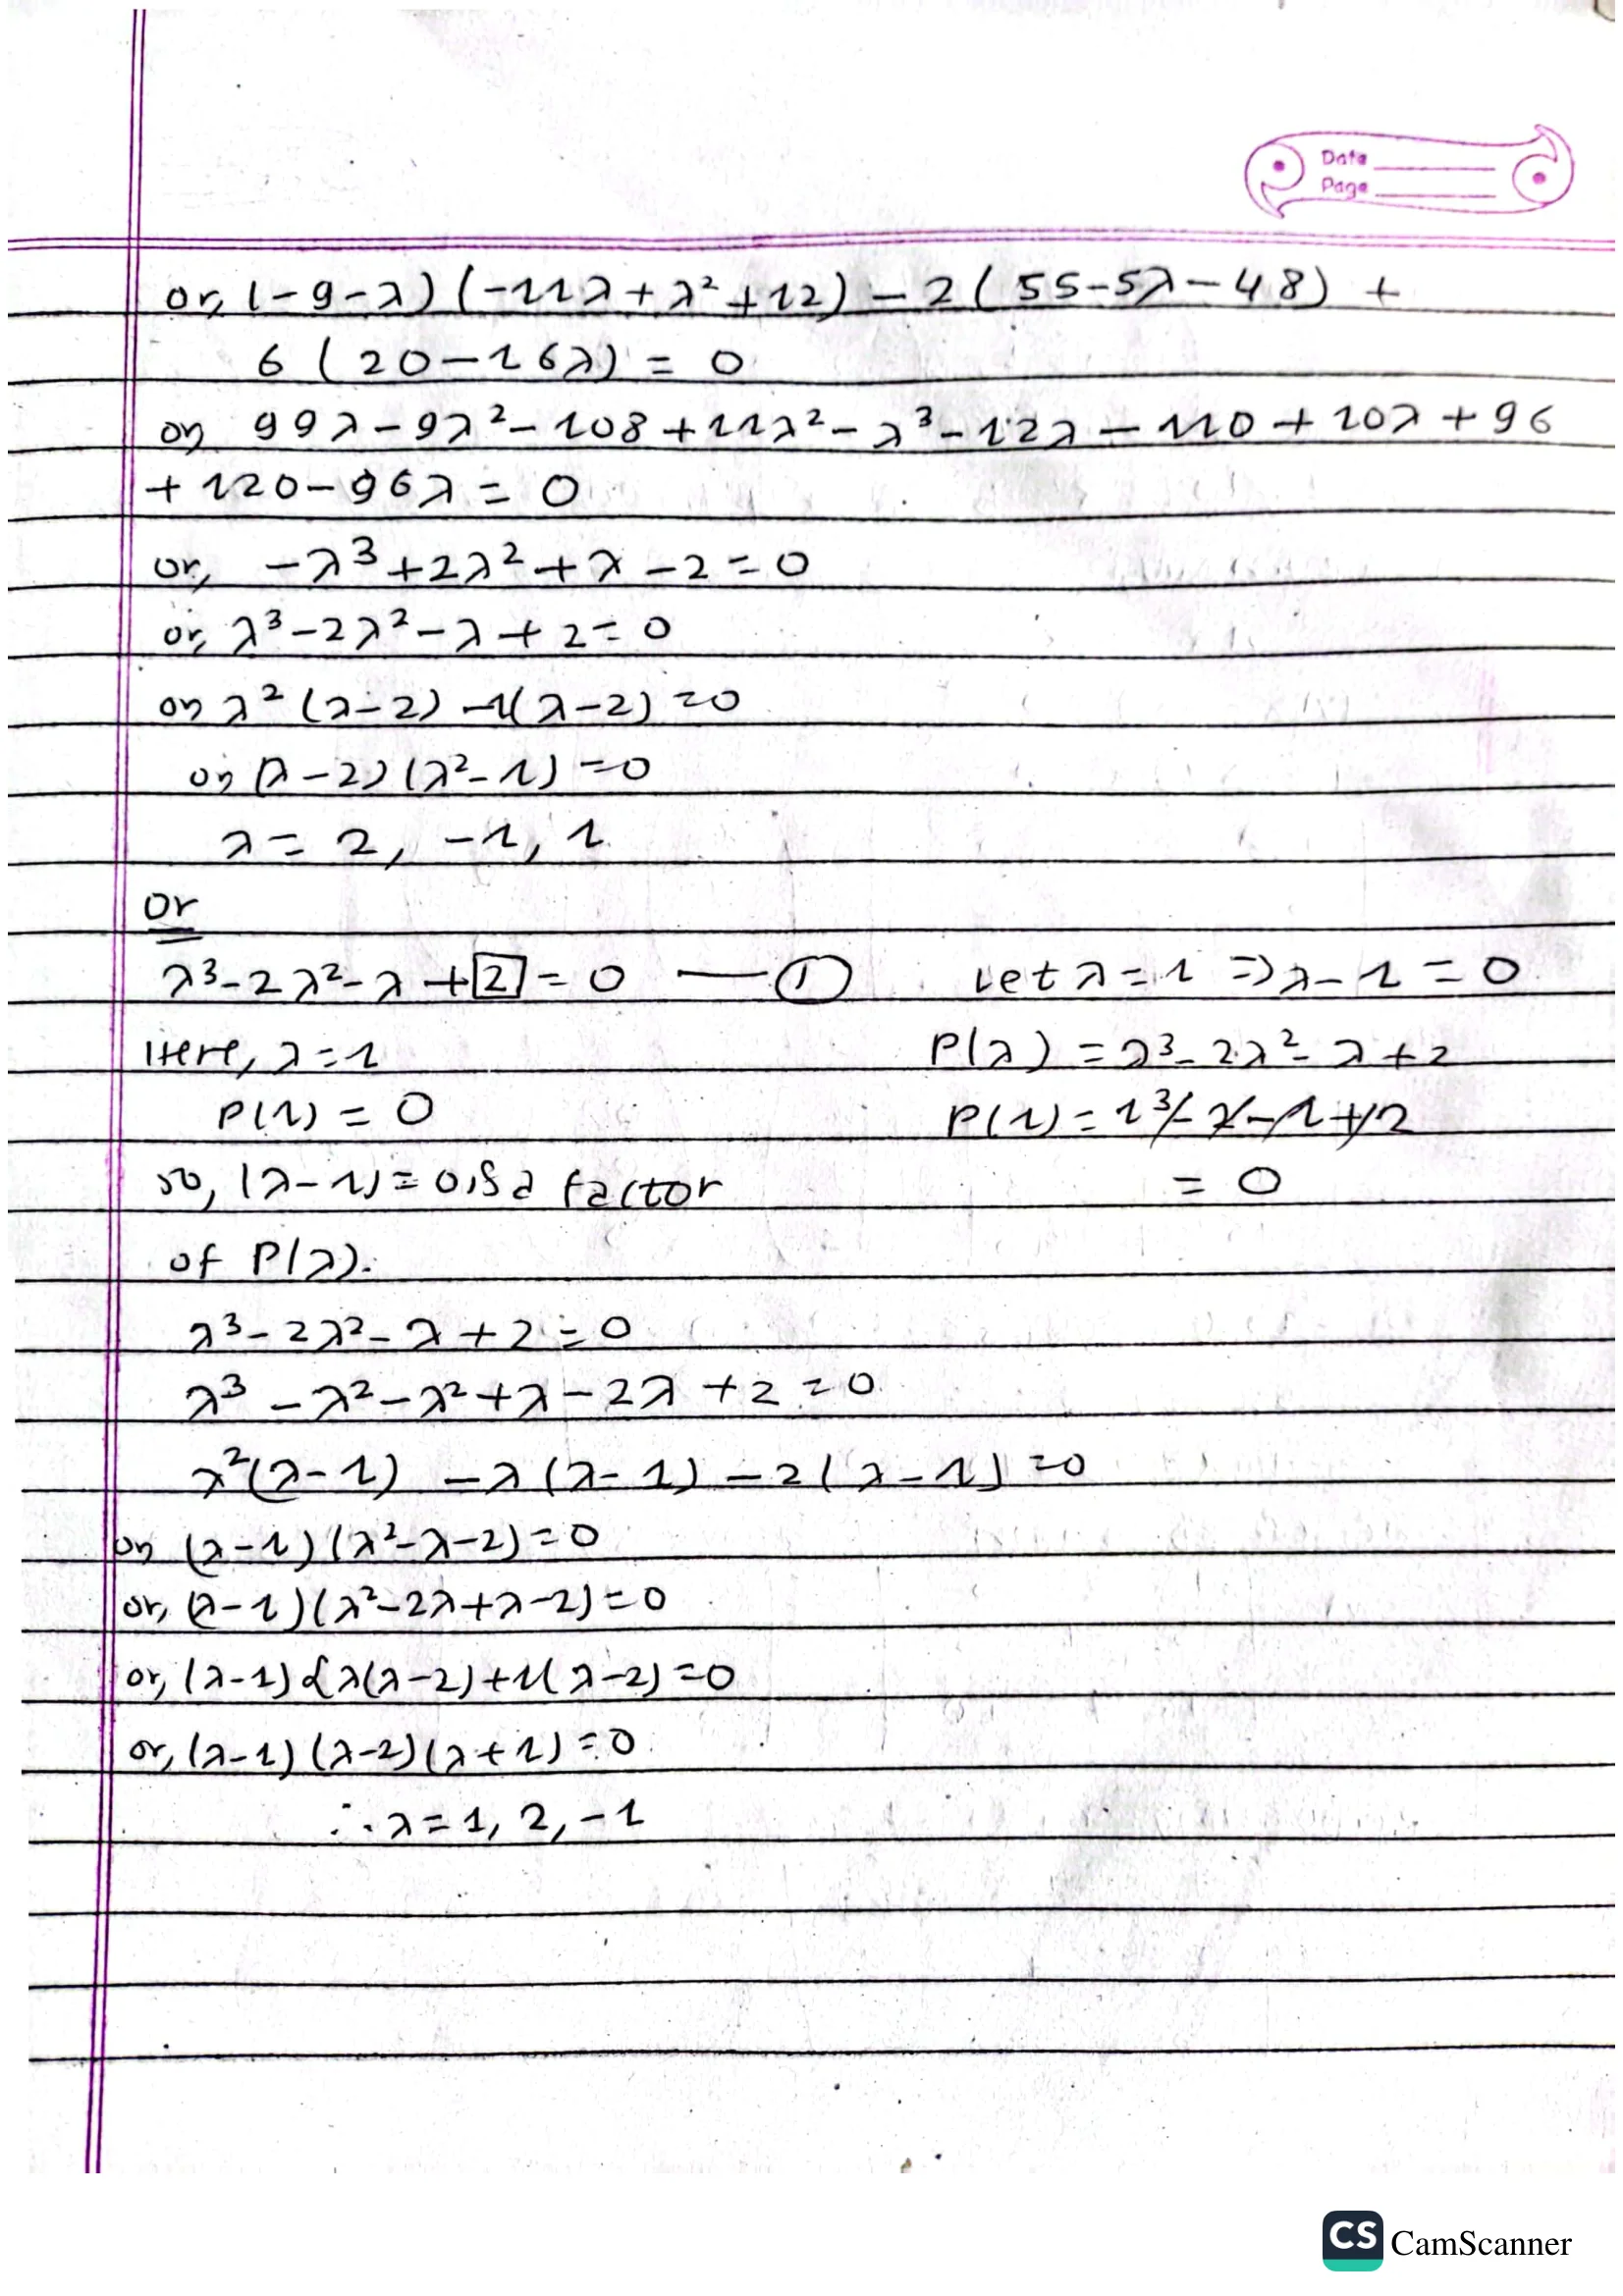 Date
Page
or, (-9-λ) (-11λ + λ² + 12) - 2( 55-5λ-48) +
6 ( 20-16λ) = 0
or, 99λ-9λ²-108+11λ²-λ³-12λ-110+10λ+96
+ 120-96λ = 0
or, -λ³+2λ²+λ-2=0
or, λ³-2λ²-λ+2=0
or, λ² (λ-2) -1(λ-2) =0
or, (λ-2) (λ²-1) =0
λ = 2, -1, 1
Or
λ³-2λ²-λ+2=0 — ① Let λ=1 => λ-1=0
Here, λ=1 P(λ) = λ³-2λ²-λ+2
P(1) = 0 P(1) = 1³-2-1+2
so, (λ-1)=0 is a factor = 0
of P(λ).
λ³-2λ²-λ+2=0
λ³-λ²-λ²+λ-2λ+2=0
λ²(λ-1) -λ(λ-1) -2(λ-1) =0
or, (λ-1)(λ²-λ-2)=0
or, (λ-1)(λ²-2λ+λ-2)=0
or, (λ-1){λ(λ-2)+1(λ-2)=0
or, (λ-1)(λ-2)(λ+1)=0
∴ λ=1, 2, -1
CS CamScanner